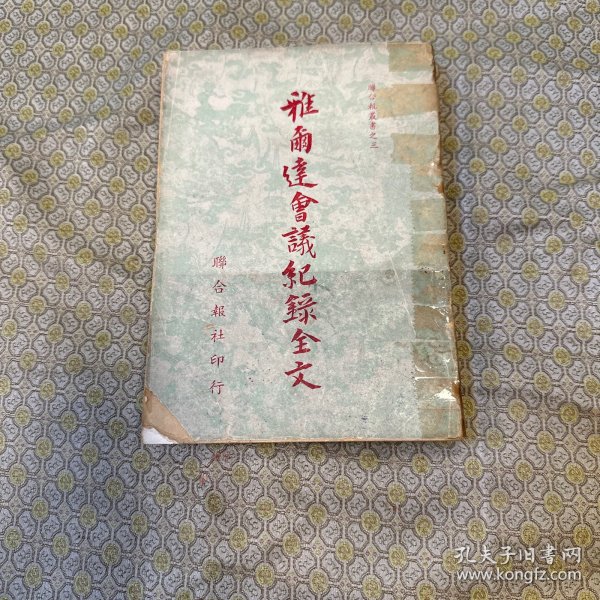 聯合報叢書之三
雅爾達會議紀錄全文
聯合報社印行
孔夫子旧书网
www.kongfz.com